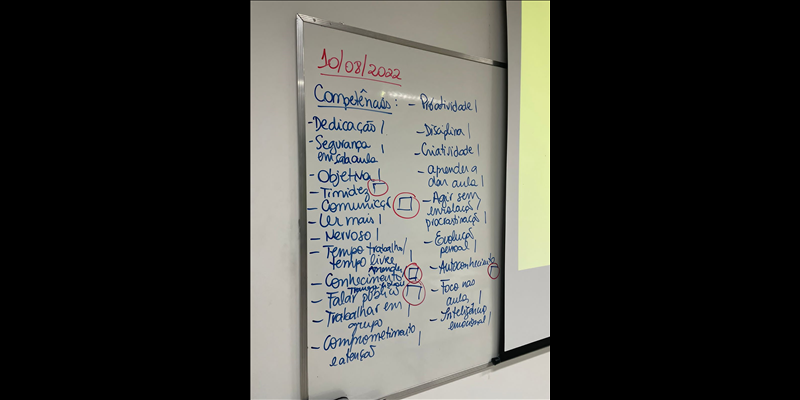 10/08/2022
Competências:
- Dedicação |
- Segurança
em sala aula |
- Objetiva |
- Timidez
- Comunicaç
- Ler mais |
- Nervoso |
- Tempo trabalho/
tempo livre |
Aprender
- Conhecimento
- Falar público
- Trabalhar em
grupo |
- Comprometimento
e atenção |
- Proatividade |
- Disciplina |
- Criatividade |
- aprender a
dar aula |
- Agir sem
procrastinaçã |
- Evoluçã
pessoal |
- Autoconhecimento
- Foco nas
aulas |
- Inteligência
emocional |